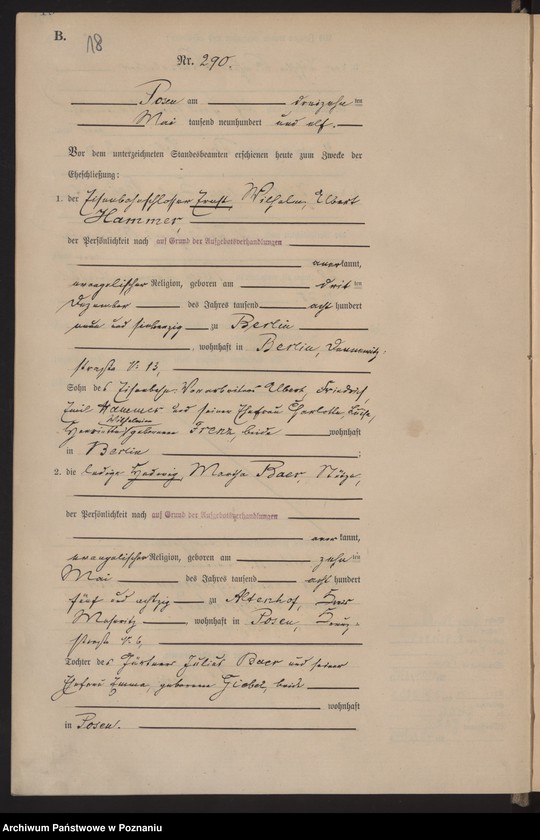 B.
18
Nr. 290.
Posen am dreizehn ten
Mai tausend neunhundert und elf.
Vor dem unterzeichneten Standesbeamten erschienen heute zum Zwecke der
Eheschließung:
1. der Eisenbahnschlosser Ernst, Wilhelm, Albert
Hammer,
der Persönlichkeit nach auf Grund der Aufgebotsverhandlungen
anerkannt,
evangelischer Religion, geboren am dritten
Dezember des Jahres tausend acht hundert
neun und siebenzig zu Berlin
, wohnhaft in Berlin, Dennewitz-
straße Nr. 13,
Sohn des Eisenbahn-Vorarbeiters Albert, Friedrich,
Emil Hammer und seiner Ehefrau Charlotte, Luise,
Wilhelmine
Henriette, geborenen Frenz, beide wohnhaft
in Berlin ;
2. die ledige Hedwig, Martha Baer, Stütze,
der Persönlichkeit nach auf Grund der Aufgebotsverhandlungen
anerkannt,
evangelischer Religion, geboren am zehnten
Mai des Jahres tausend acht hundert
fünf und achtzig zu Altenhof, Kreis
Meseritz, wohnhaft in Posen, Kreuz-
straße Nr. 6,
Tochter des Gärtners Julius Baer und seiner
Ehefrau Emma, geborenen Giebel, beide
wohnhaft
in Posen.
Archiwum Państwowe w Poznaniu